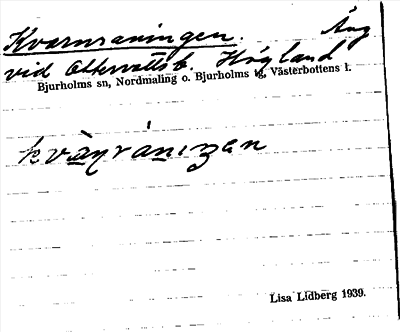 Kvarnraningen. Äng
vid Ottervattsb. Högland
Bjurholms sn, Nordmaling o. Bjurholms tg, Västerbottens l.
Lisa Lidberg 1939.